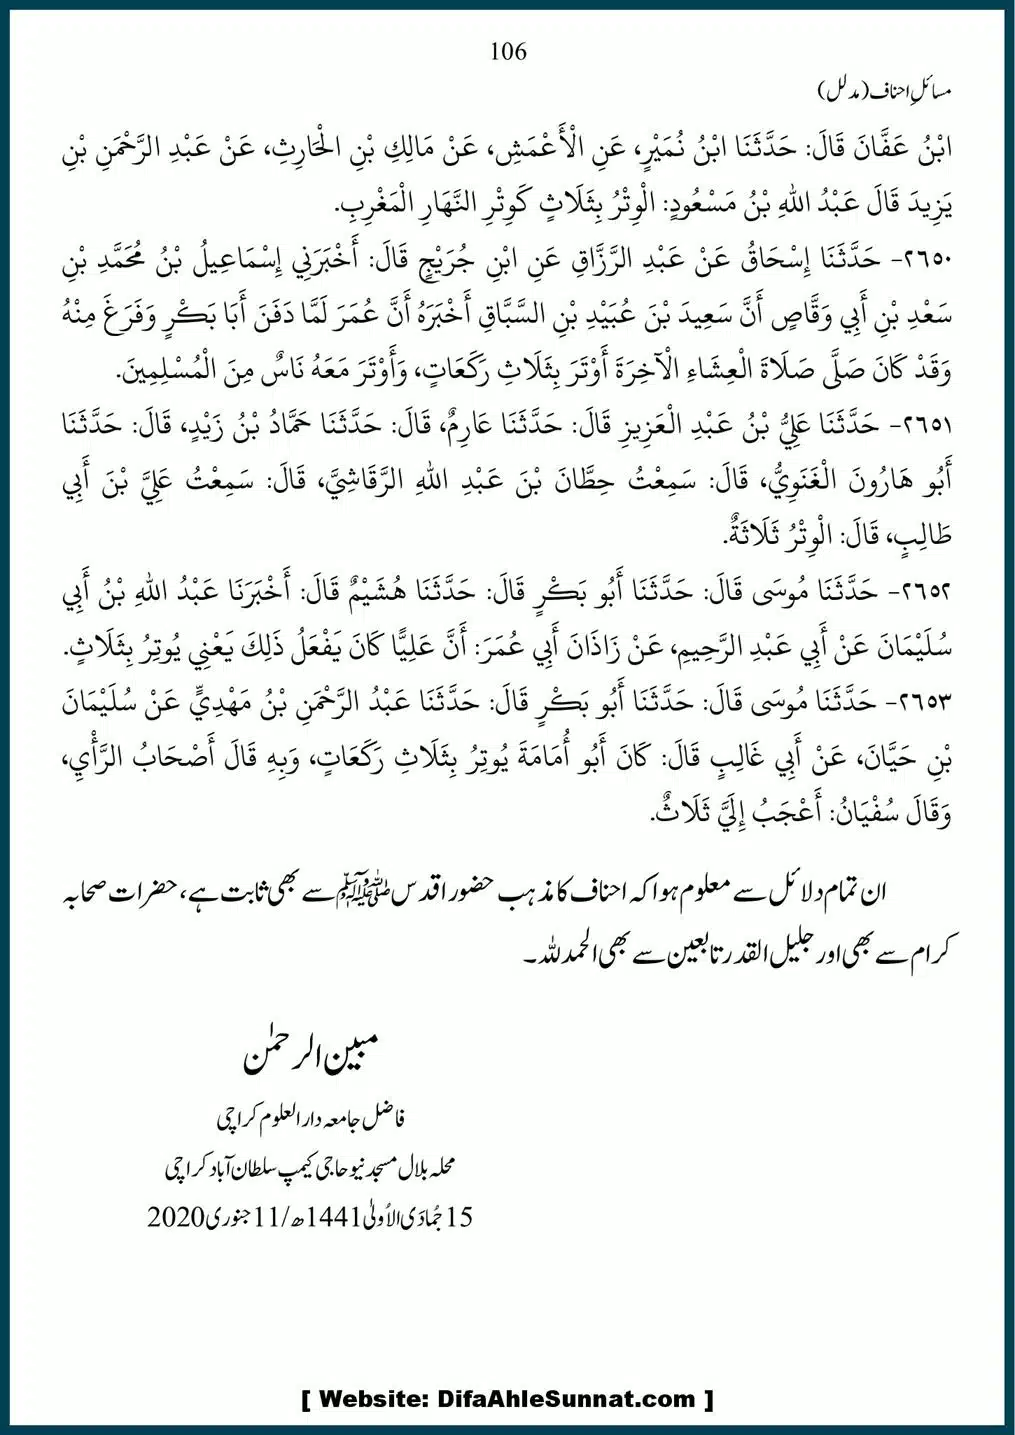 106
مسائلِ احناف (مدلل)
ابْنُ عَفَّانَ قَالَ: حَدَّثَنَا ابْنُ نُمَيْرٍ، عَنِ الْأَعْمَشِ، عَنْ مَالِكِ بْنِ الْحَارِثِ، عَنْ عَبْدِ الرَّحْمَنِ بْنِ
يَزِيدَ قَالَ عَبْدُ اللهِ بْنُ مَسْعُودٍ: الْوِتْرُ بِثَلَاثٍ كَوِتْرِ النَّهَارِ الْمَغْرِبِ.
٢٦٥٠- حَدَّثَنَا إِسْحَاقُ عَنْ عَبْدِ الرَّزَّاقِ عَنِ ابْنِ جُرَيْجٍ قَالَ: أَخْبَرَنِي إِسْمَاعِيلُ بْنُ مُحَمَّدِ بْنِ
سَعْدِ بْنِ أَبِي وَقَّاصٍ أَنَّ سَعِيدَ بْنَ عُبَيْدِ بْنِ السَّبَّاقِ أَخْبَرَهُ أَنَّ عُمَرَ لَمَّا دَفَنَ أَبَا بَكْرٍ وَفَرَغَ مِنْهُ
وَقَدْ كَانَ صَلَّى صَلَاةَ الْعِشَاءِ الْآخِرَةَ أَوْتَرَ بِثَلَاثِ رَكَعَاتٍ، وَأَوْتَرَ مَعَهُ نَاسٌ مِنَ الْمُسْلِمِينَ.
٢٦٥١- حَدَّثَنَا عَلِيُّ بْنُ عَبْدِ الْعَزِيزِ قَالَ: حَدَّثَنَا عَارِمٌ، قَالَ: حَدَّثَنَا حَمَّادُ بْنُ زَيْدٍ، قَالَ: حَدَّثَنَا
أَبُو هَارُونَ الْغَنَوِيُّ، قَالَ: سَمِعْتُ حِطَّانَ بْنَ عَبْدِ اللهِ الرَّقَاشِيَّ، قَالَ: سَمِعْتُ عَلِيَّ بْنَ أَبِي
طَالِبٍ، قَالَ: الْوِتْرُ ثَلَاثَةٌ.
٢٦٥٢- حَدَّثَنَا مُوسَى قَالَ: حَدَّثَنَا أَبُو بَكْرٍ قَالَ: حَدَّثَنَا هُشَيْمٌ قَالَ: أَخْبَرَنَا عَبْدُ اللهِ بْنُ أَبِي
سُلَيْمَانَ عَنْ أَبِي عَبْدِ الرَّحِيمِ، عَنْ زَاذَانَ أَبِي عُمَرَ: أَنَّ عَلِيًّا كَانَ يَفْعَلُ ذَلِكَ يَعْنِي يُوتِرُ بِثَلَاثٍ.
٢٦٥٣- حَدَّثَنَا مُوسَى قَالَ: حَدَّثَنَا أَبُو بَكْرٍ قَالَ: حَدَّثَنَا عَبْدُ الرَّحْمَنِ بْنُ مَهْدِيٍّ عَنْ سُلَيْمَانَ
بْنِ حَيَّانَ، عَنْ أَبِي غَالِبٍ قَالَ: كَانَ أَبُو أُمَامَةَ يُوتِرُ بِثَلَاثِ رَكَعَاتٍ، وَبِهِ قَالَ أَصْحَابُ الرَّأْيِ،
وَقَالَ سُفْيَانُ: أَعْجَبُ إِلَيَّ ثَلَاثٌ.
ان تمام دلائل سے معلوم ہوا کہ احناف کا مذہب حضور اقدس ﷺ سے بھی ثابت ہے، حضرات صحابہ
کرام سے بھی اور جلیل القدر تابعین سے بھی الحمد للہ۔
مبین الرحمٰن
فاضل جامعہ دار العلوم کراچی
محلہ بلال مسجد نیو حاجی کیمپ سلطان آباد کراچی
15 جُمادَی الاُولیٰ 1441ھ/11 جنوری 2020
[ Website: DifaAhleSunnat.com ]